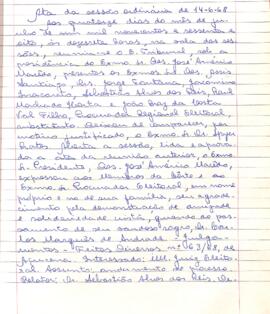 Ata da sessão ordinária de 14-6-68
Aos quatorze dias do mês de ju
nho de um mil novecentos e sessenta e
oito, às dezesseis horas, na sala das ses
sões, reuniu-se o E. Tribunal, sob a
presidência do Exmo. Sr. Des. José Américo
Macêdo, presentes os Exmos. Srs. Des.
Santiago, Drs. Jorge Fontana, Jacomino
Inacarato, Sebastião Alves dos Reis, Raul
Machado Horta e João Braz da Costa
Val Filho, Procurador Regional Eleitoral,
substituto. Deixou de comparecer, por
motivo justificado, o Exmo. Sr. Dr.
Prates. Aberta a sessão, lida e aprova
da a ata da reunião anterior, o Exmo.
Sr. Presidente, Des. José Américo Macêdo,
expressou aos Membros da Côrte e ao
Exmo. Sr. Procurador Eleitoral, em nome
próprio e no de sua família, seu agrade
cimento pela demonstração de amizade
e solidariedade havida, quando do pas
samento de seu saudoso sogro, Dr. Car
los Marques de Andrade. Julga
mentos - Feitos Diversos n.º 63/68, de
Açucena. Interessado: MM. Juiz Eleito
ral. Assunto: andamento do processo.
Relator: Dr. Sebastião Alves dos Reis. De